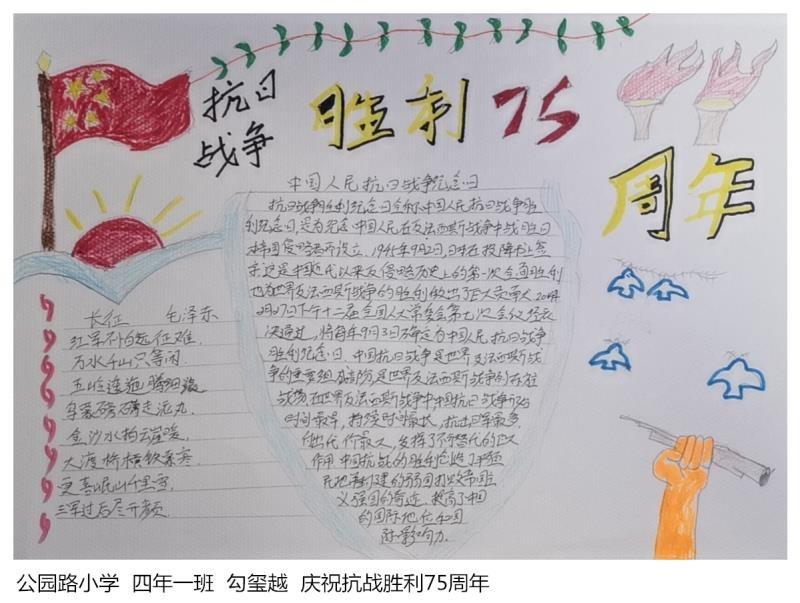 抗日
战争
胜利75
周年
中国人民抗日战争纪念日
抗日战争胜利纪念日全称中国人民抗日战争胜
利纪念日,是为纪念中国人民在反法西斯战争中战胜日
本帝国侵略者而设立,1945年9月2日,日本在投降书上签
字这是中国近代以来反侵略历史上的第一次全面胜利
也为世界反法西斯战争的胜利做出了巨大贡献2014年
2月27日下午十二届全国人大常委会第七次会议经表
决通过,将每年9月3日确定为中国人民抗日战争
胜利纪念日。中国抗日战争是世界反法西斯战
争的重要组成部分,是世界反法西斯战争的东方
战场在世界反法西斯战争中中国抗日战争开始
时间最早,持续时间最长,抗击日军最多,
付出代价最大,发挥了不可替代的巨大
作用 中国抗战的胜利
义强国的奇迹,提高了中国
的国际地位和国
际影响力.
长征 毛泽东
红军不怕远征难.
万水千山只等闲.
五岭逶迤腾细浪
乌蒙磅礴走泥丸.
金沙水拍云崖暖.
大渡桥横铁索寒
更喜岷山千里雪.
三军过后尽开颜.
公园路小学 四年一班 勾玺越 庆祝抗战胜利75周年